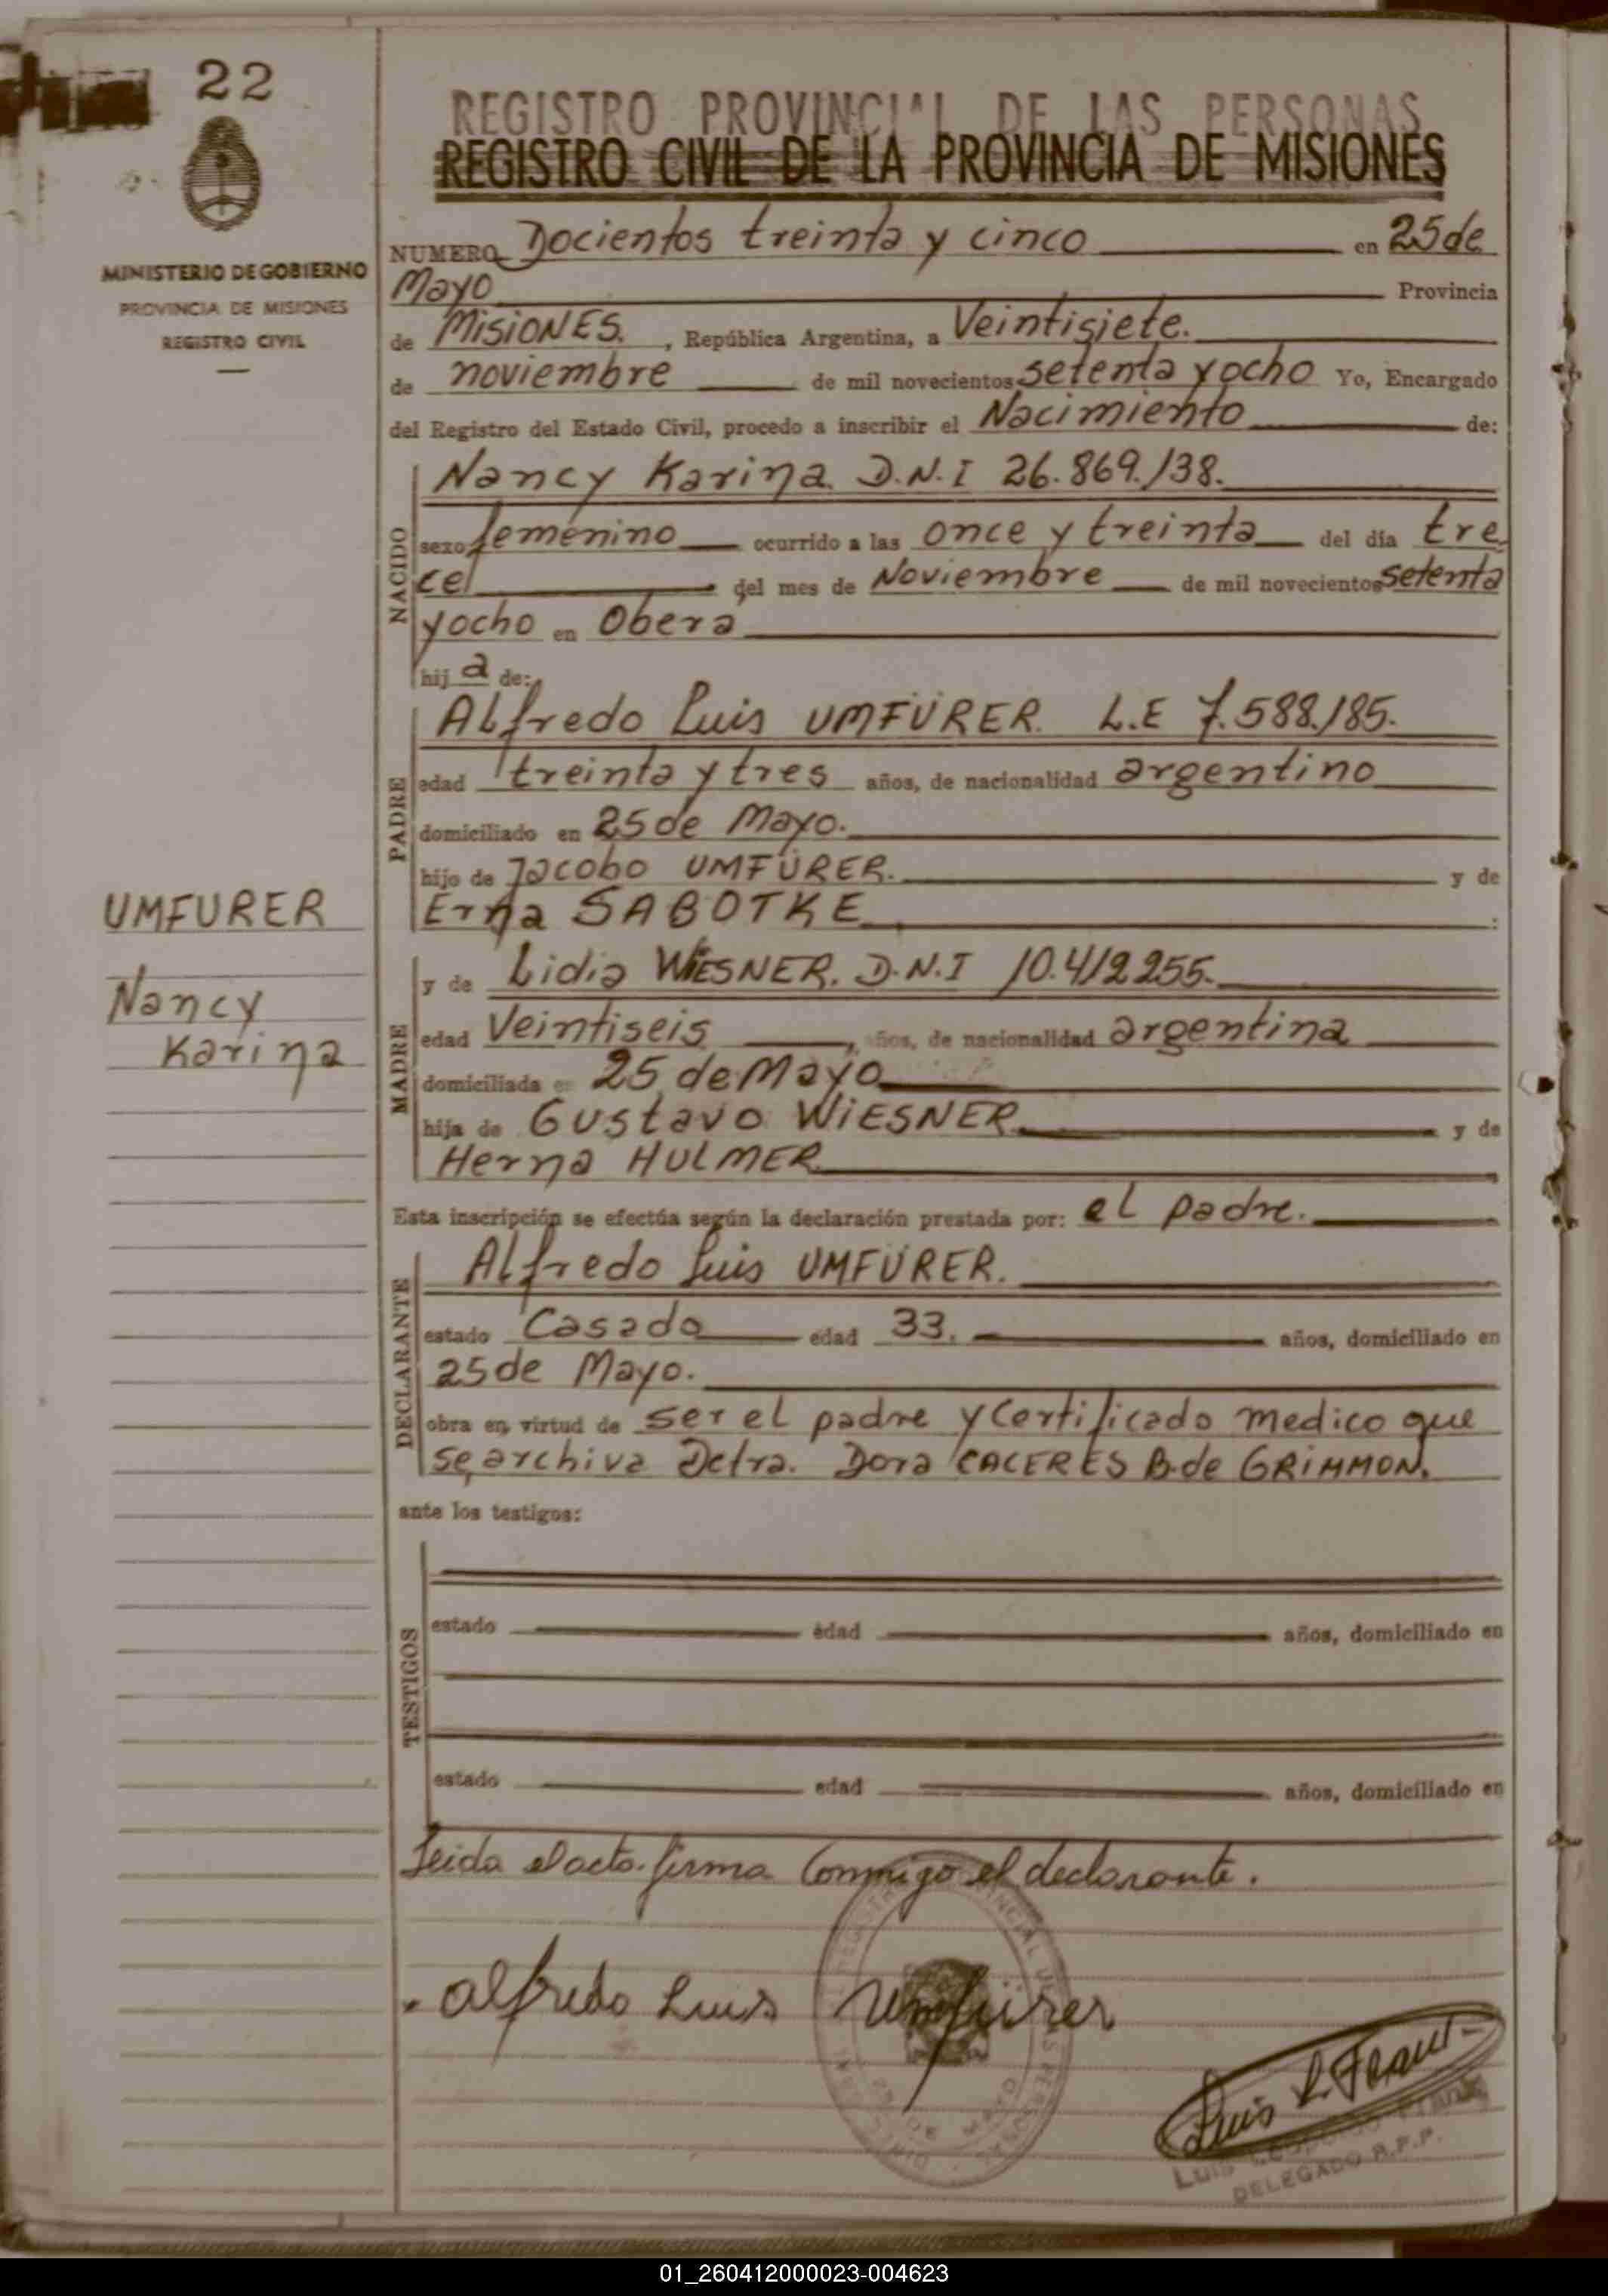 22
MINISTERIO DE GOBIERNO
PROVINCIA DE MISIONES
REGISTRO CIVIL
UMFURER
Nancy
Karina
REGISTRO PROVINCIAL DE LAS PERSONAS
REGISTRO CIVIL DE LA PROVINCIA DE MISIONES
NUMERO Docientos treinta y cinco en 25 de
Mayo Provincia
de MISIONES. , República Argentina, a Veintisiete.
de noviembre de mil novecientos setenta y ocho Yo, Encargado
del Registro del Estado Civil, procedo a inscribir el Nacimiento de:
NACIDO
Nancy Karina. D.N.I 26.869.138.
sexo femenino ocurrido a las once y treinta del día tre
ce del mes de Noviembre de mil novecientos setenta
y ocho en Oberá
hij a de:
PADRE
Alfredo Luis UMFÜRER. L.E 7.588.185.
edad treinta y tres años, de nacionalidad argentino
domiciliado en 25 de Mayo.
hijo de Jacobo UMFÜRER. y de
Erna SABOTKE :
MADRE
y de Lidia WIESNER. D.N.I 10.412255.
edad Veintiseis , años, de nacionalidad argentina
domiciliada en 25 de Mayo
hija de Gustavo WIESNER y de
Herna HULMER
Esta inscripción se efectúa según la declaración prestada por: el padre.
DECLARANTE
Alfredo Luis UMFÜRER.
estado Casado edad 33. años, domiciliado en
25 de Mayo.
obra en virtud de ser el padre y Certificado medico que
se archiva Dctra. Dora CACERES B. de GRIMMON.
ante los testigos:
TESTIGOS
estado edad años, domiciliado en
estado edad años, domiciliado en
Leida el acto. firma Conmigo el declarante.
Alfredo Luis Umfürer
Luis L. Frank
DELEGADO R.P.P.
01_260412000023-004623